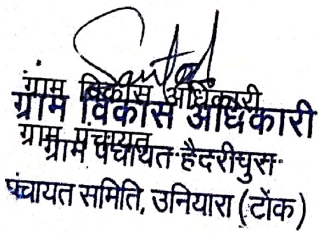 ग्राम विकास अधिकारी
ग्राम विकास अधिकारी
ग्राम पंचायत
ग्राम पंचायत-हैदरीपुरा
पंचायत समिति, उनियारा (टोंक)